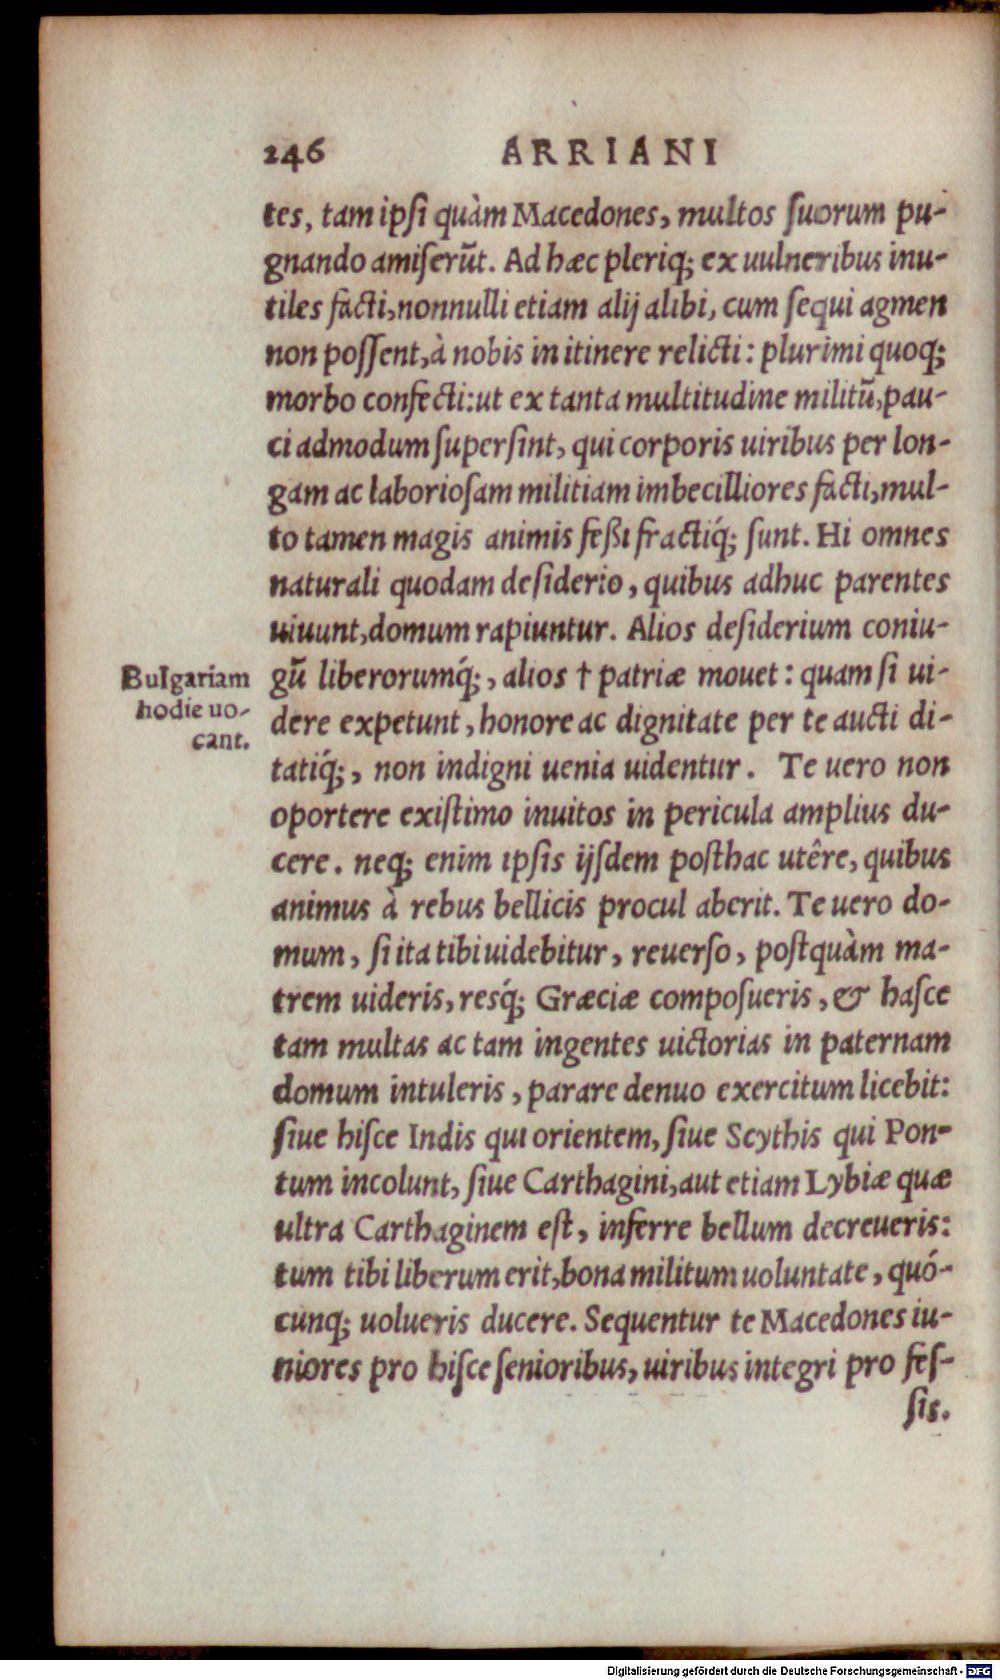 246 ARRIANI
tes, tam ipſi quàm Macedones, multos ſuorum pu-
gnando amiſerũt. Ad hæc pleriq; ex uulneribus inu-
tiles facti, nonnulli etiam alij alibi, cum ſequi agmen
non poſſent, à nobis in itinere relicti: plurimi quoq;
morbo confecti: ut ex tanta multitudine militũ, pau-
ci admodum ſuperſint, qui corporis uiribus per lon-
gam ac laborioſam militiam imbecilliores facti, mul-
to tamen magis animis feßi fractiq́; ſunt. Hi omnes
naturali quodam deſiderio, quibus adhuc parentes
uiuunt, domum rapiuntur. Alios deſiderium coniu-
gũ liberorumq́;, alios † patriæ mouet: quam ſi ui-
dere expetunt, honore ac dignitate per te aucti di-
tatiq́;, non indigni uenia uidentur. Te uero non
oportere exiſtimo inuitos in pericula amplius du-
cere. neq; enim ipſis ijſdem poſthac utêre, quibus
animus à rebus bellicis procul aberit. Te uero do-
mum, ſi ita tibi uidebitur, reuerſo, poſtquàm ma-
trem uideris, resq́; Græciæ compoſueris, & haſce
tam multas ac tam ingentes uictorias in paternam
domum intuleris, parare denuo exercitum licebit:
ſiue hiſce Indis qui orientem, ſiue Scythis qui Pon-
tum incolunt, ſiue Carthagini, aut etiam Lybiæ quæ
ultra Carthaginem eſt, inferre bellum decreueris:
tum tibi liberum erit, bona militum uoluntate, quó-
cunq; uolueris ducere. Sequentur te Macedones iu-
niores pro hiſce ſenioribus, uiribus integri pro feſ-
ſis.
Bulgariam
hodie uo-
cant.
Digitalisierung gefördert durch die Deutsche Forschungsgemeinschaft - DFG